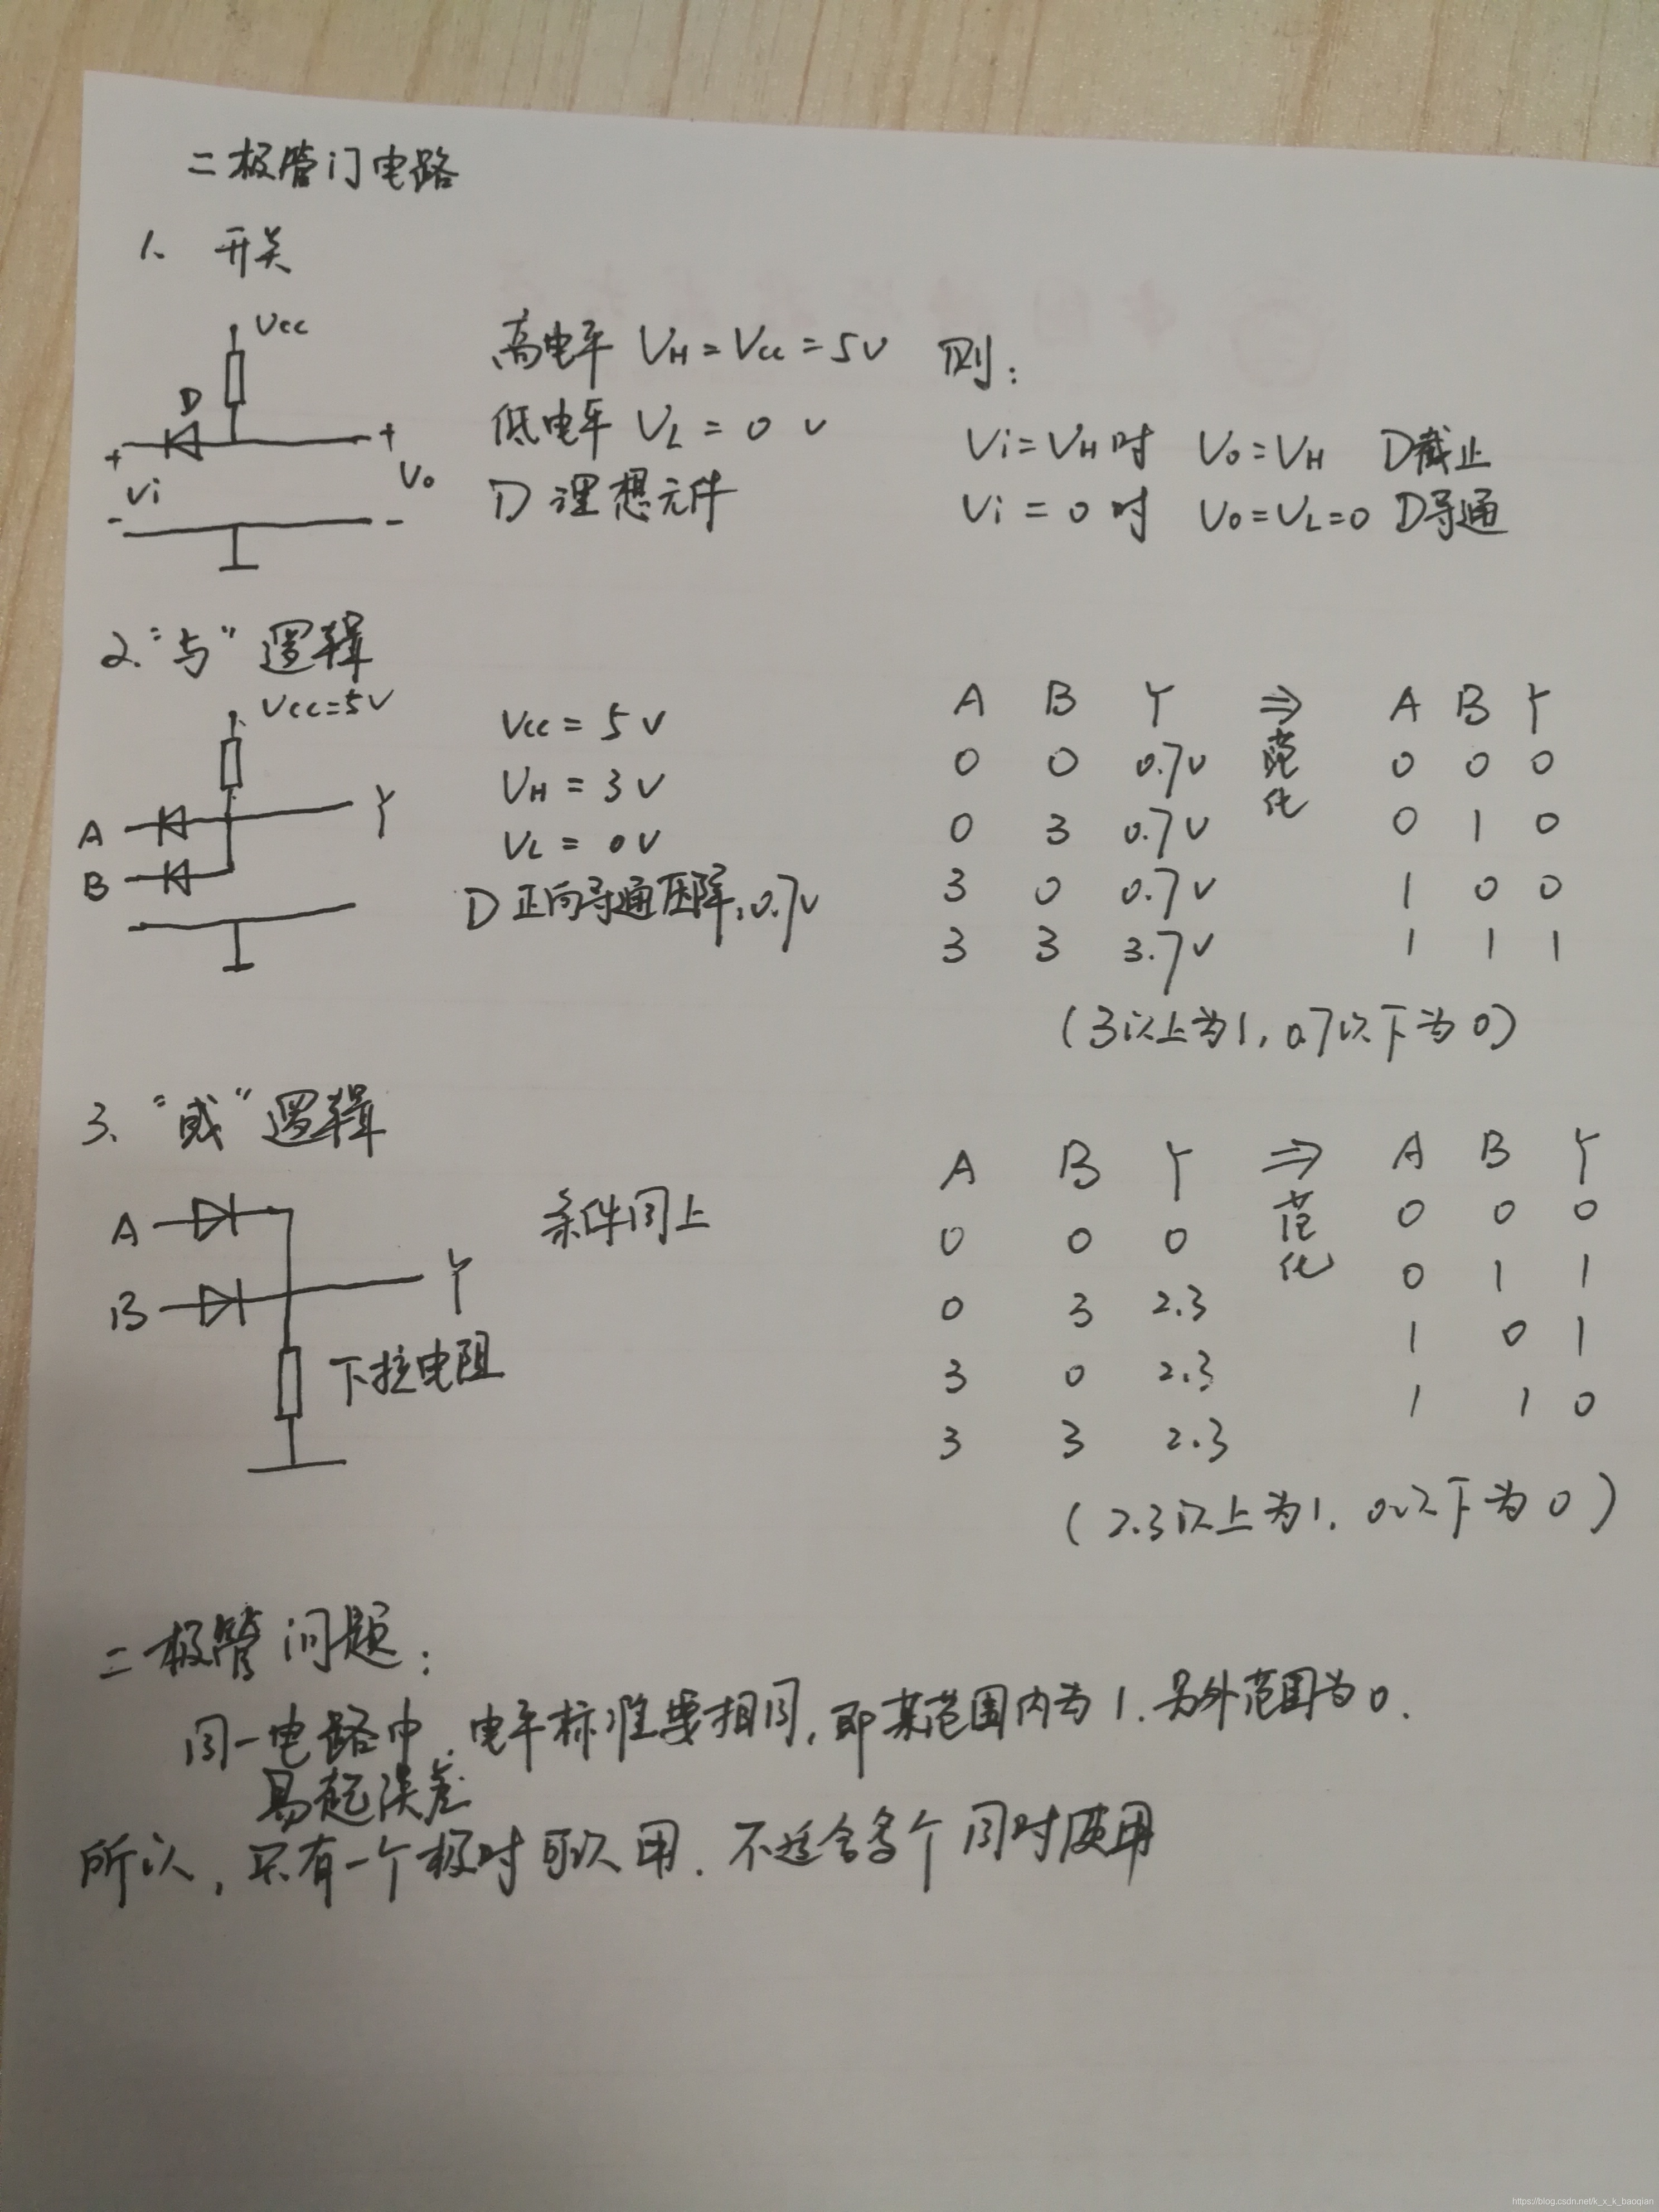 二极管门电路
1、 开关
Vcc
D
+ Vi -
+ Vo -
高电平 VH = Vcc = 5V 则：
低电平 VL = 0 V
D 理想元件
Vi = VH 时 Vo = VH D截止
Vi = 0 时 Vo = VL = 0 D导通
2. "与" 逻辑
Vcc=5V
A
B
Y
Vcc = 5 V
VH = 3 V
VL = 0V
D 正向导通压降，0.7V
A B Y ⇒ A B Y
0 0 0.7V 范化 0 0 0
0 3 0.7V 0 1 0
3 0 0.7V 1 0 0
3 3 3.7V 1 1 1
(3以上为1, 0.7以下为0)
3、 "或" 逻辑
A
B
Y
下拉电阻
条件同上
A B Y ⇒ A B Y
0 0 0 范化 0 0 0
0 3 2.3 0 1 1
3 0 2.3 1 0 1
3 3 2.3 1 1 0
(2.3以上为1, 0以下为0)
二极管问题：
同一电路中，电平标准要相同，即某范围内为1.另外范围为0.
易起误差
所以，只有一个极时可以用. 不适合多个同时使用
https://blog.csdn.net/k_x_k_baoqian